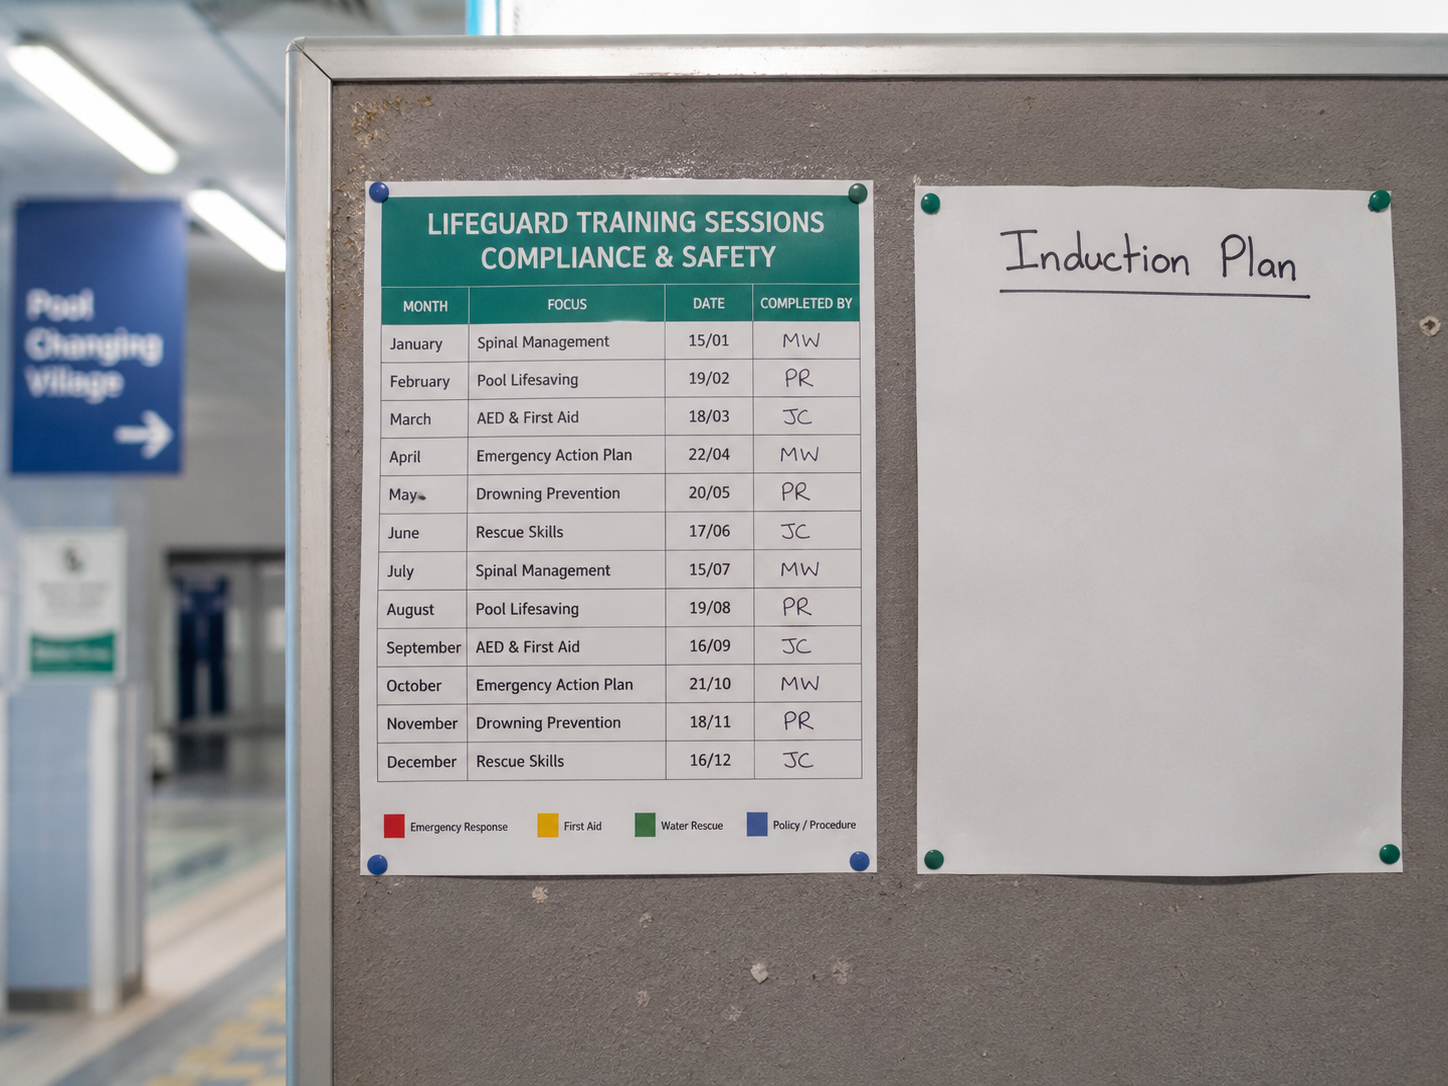 Pool
Changing
Village
LIFEGUARD TRAINING SESSIONS
COMPLIANCE & SAFETY
MONTH FOCUS DATE COMPLETED BY
January Spinal Management 15/01 MW
February Pool Lifesaving 19/02 PR
March AED & First Aid 18/03 JC
April Emergency Action Plan 22/04 MW
May Drowning Prevention 20/05 PR
June Rescue Skills 17/06 JC
July Spinal Management 15/07 MW
August Pool Lifesaving 19/08 PR
September AED & First Aid 16/09 JC
October Emergency Action Plan 21/10 MW
November Drowning Prevention 18/11 PR
December Rescue Skills 16/12 JC
Emergency Response First Aid Water Rescue Policy / Procedure
Induction Plan